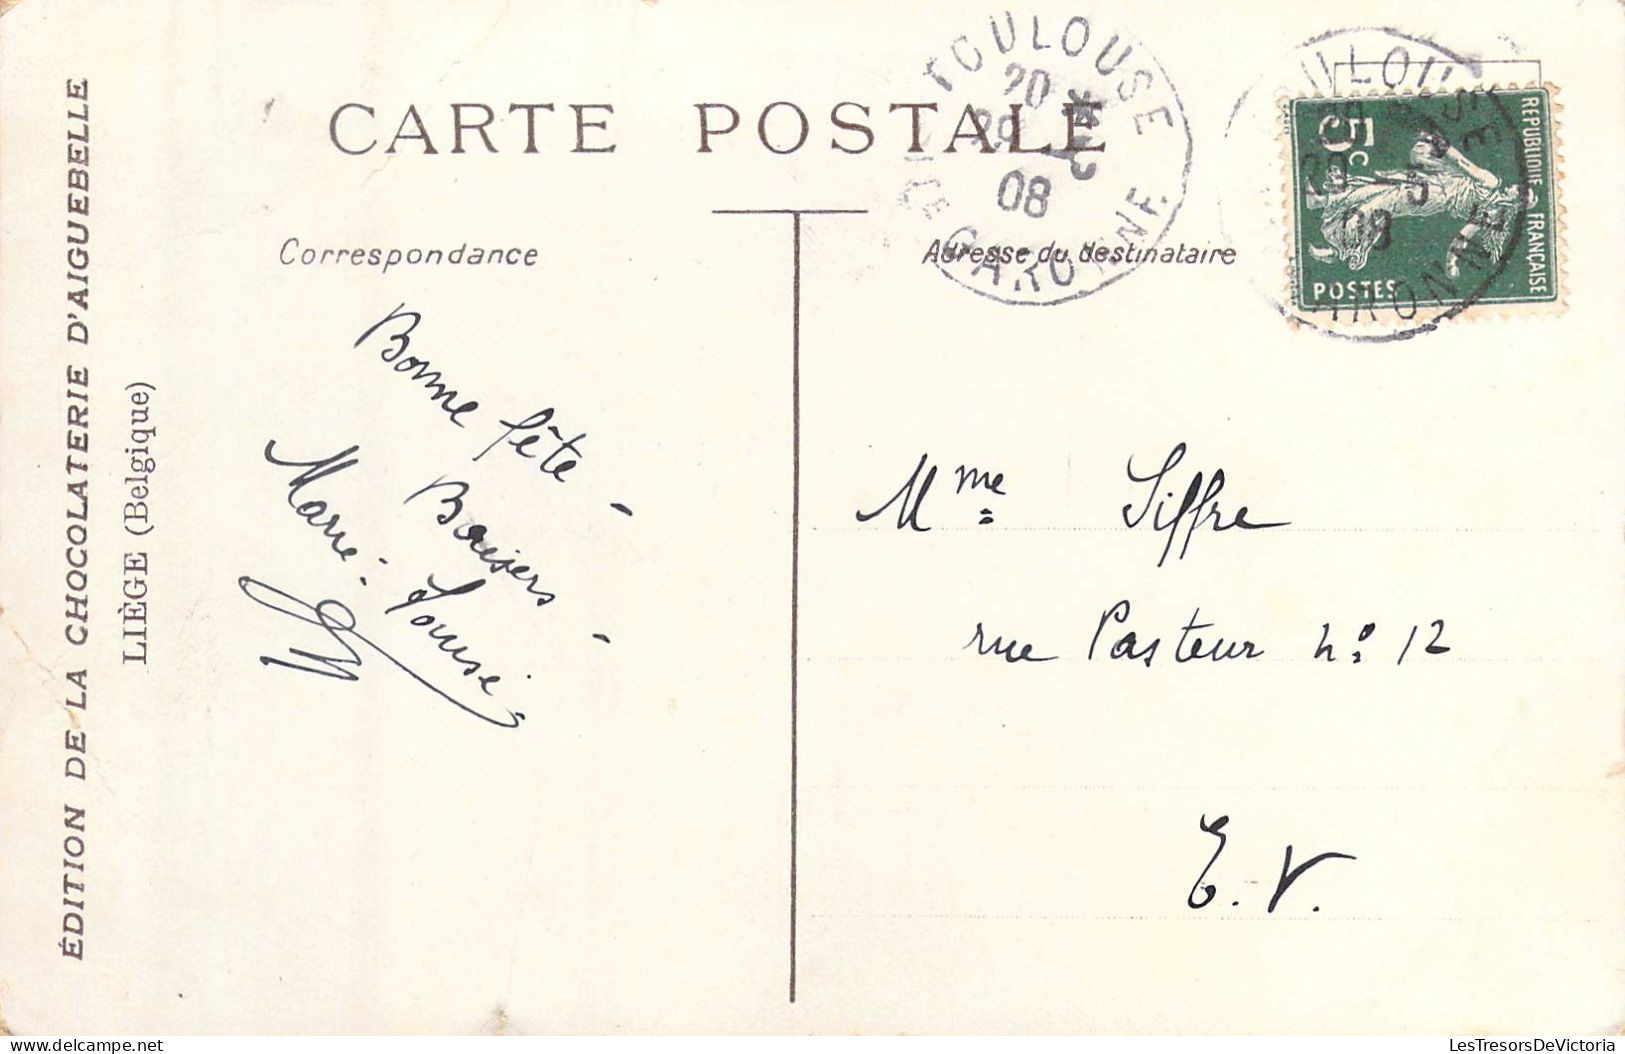 CARTE POSTALE
Correspondance
Adresse du destinataire
ÉDITION DE LA CHOCOLATERIE D'AIGUEBELLE
LIÈGE (Belgique)
Bonne fête -
Baisers -
Marie-Louise
Mme Siffre
rue Pasteur No 12
E. V.
TOULOUSE
20
08
GARONNE
REPUBLIQUE FRANÇAISE
5c
POSTES
08
LesTresorsDeVictoria.com